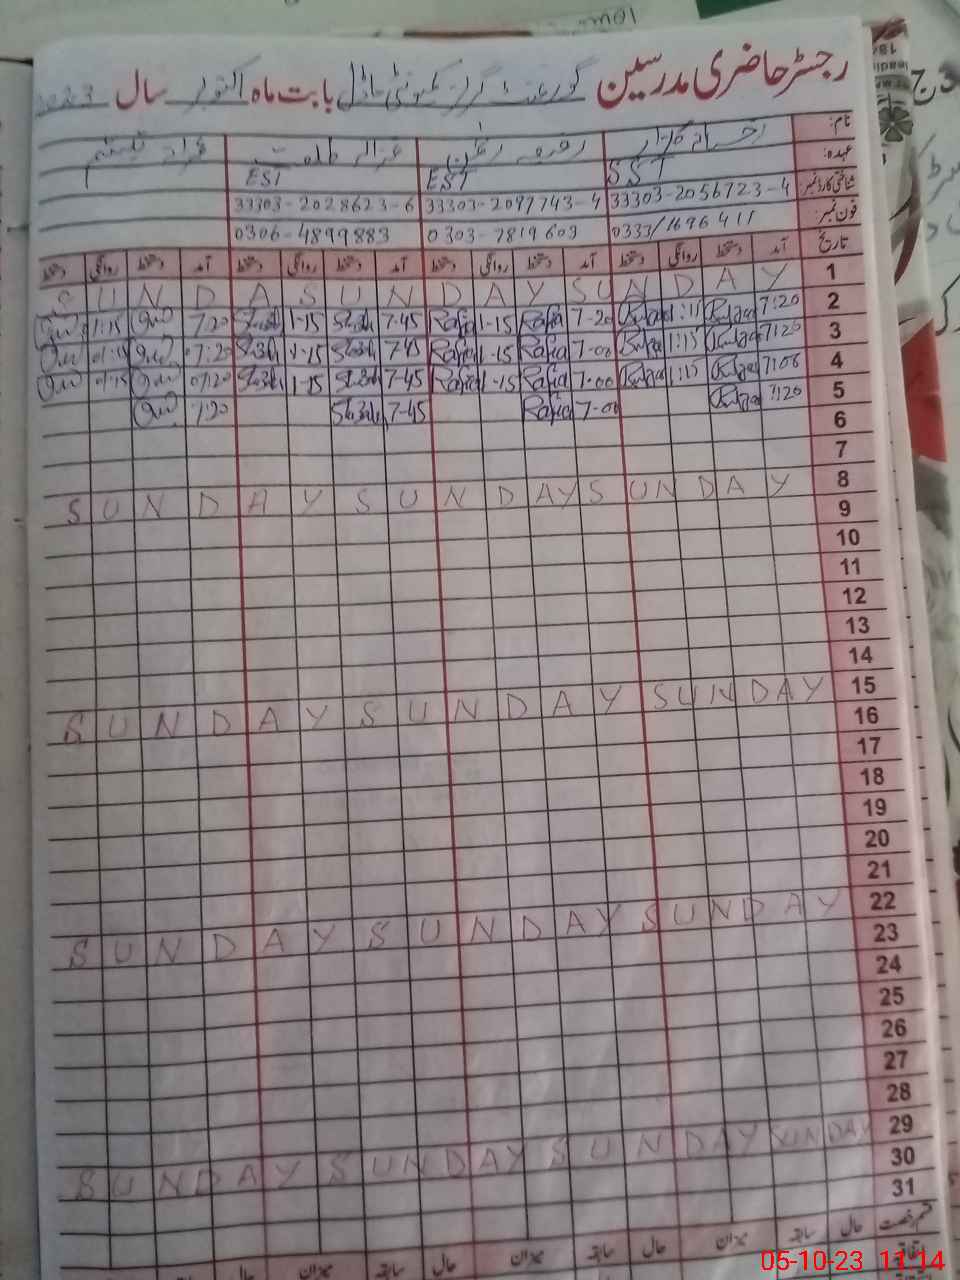 رجسٹر حاضری مدرسین گورنمنٹ گرلز کمیونٹی ماڈل بابت ماہ اکتوبر سال 2023
نام:
عہدہ: SST EST EST
شناختی کارڈ نمبر: 33303-2056723-4 33303-2097743-4 33303-2028623-6
فون نمبر: 0333/1696411 0303-7819609 0306-4899883
تاریخ آمد دستخط روانگی دستخط آمد دستخط روانگی دستخط آمد دستخط روانگی دستخط آمد دستخط روانگی دستخط
1 SUNDASUNDAYSUNDAY
2 7:20 1:11 7-20 Rafia 1-15 Rafia 7-45 1-15 7:20 1:15
3 7:20 1:15 7-00 Rafia 1-15 Rafia 7-45 1-15 07:20
4 7:06 1:15 7-00 Rafia 1-15 Rafia 7-45 1-15 07:20 01:15
5 7:20 7-00 Rafia 7-45 7:20
6
7
8 SUNDAYSUNDAYSUNDAY
9
10
11
12
13
14
15 SUNDAYSUNDAYSUNDAY
16
17
18
19
20
21
22 SUNDAYSUNDAYSUNDAY
23
24
25
26
27
28
29 SUNDAYSUNDAYSUNDAYSUNDAY
30
31
قسم رخصت حال سابقہ میزان حال سابقہ میزان حال سابقہ میزان حال سابقہ
05-10-23 11:14